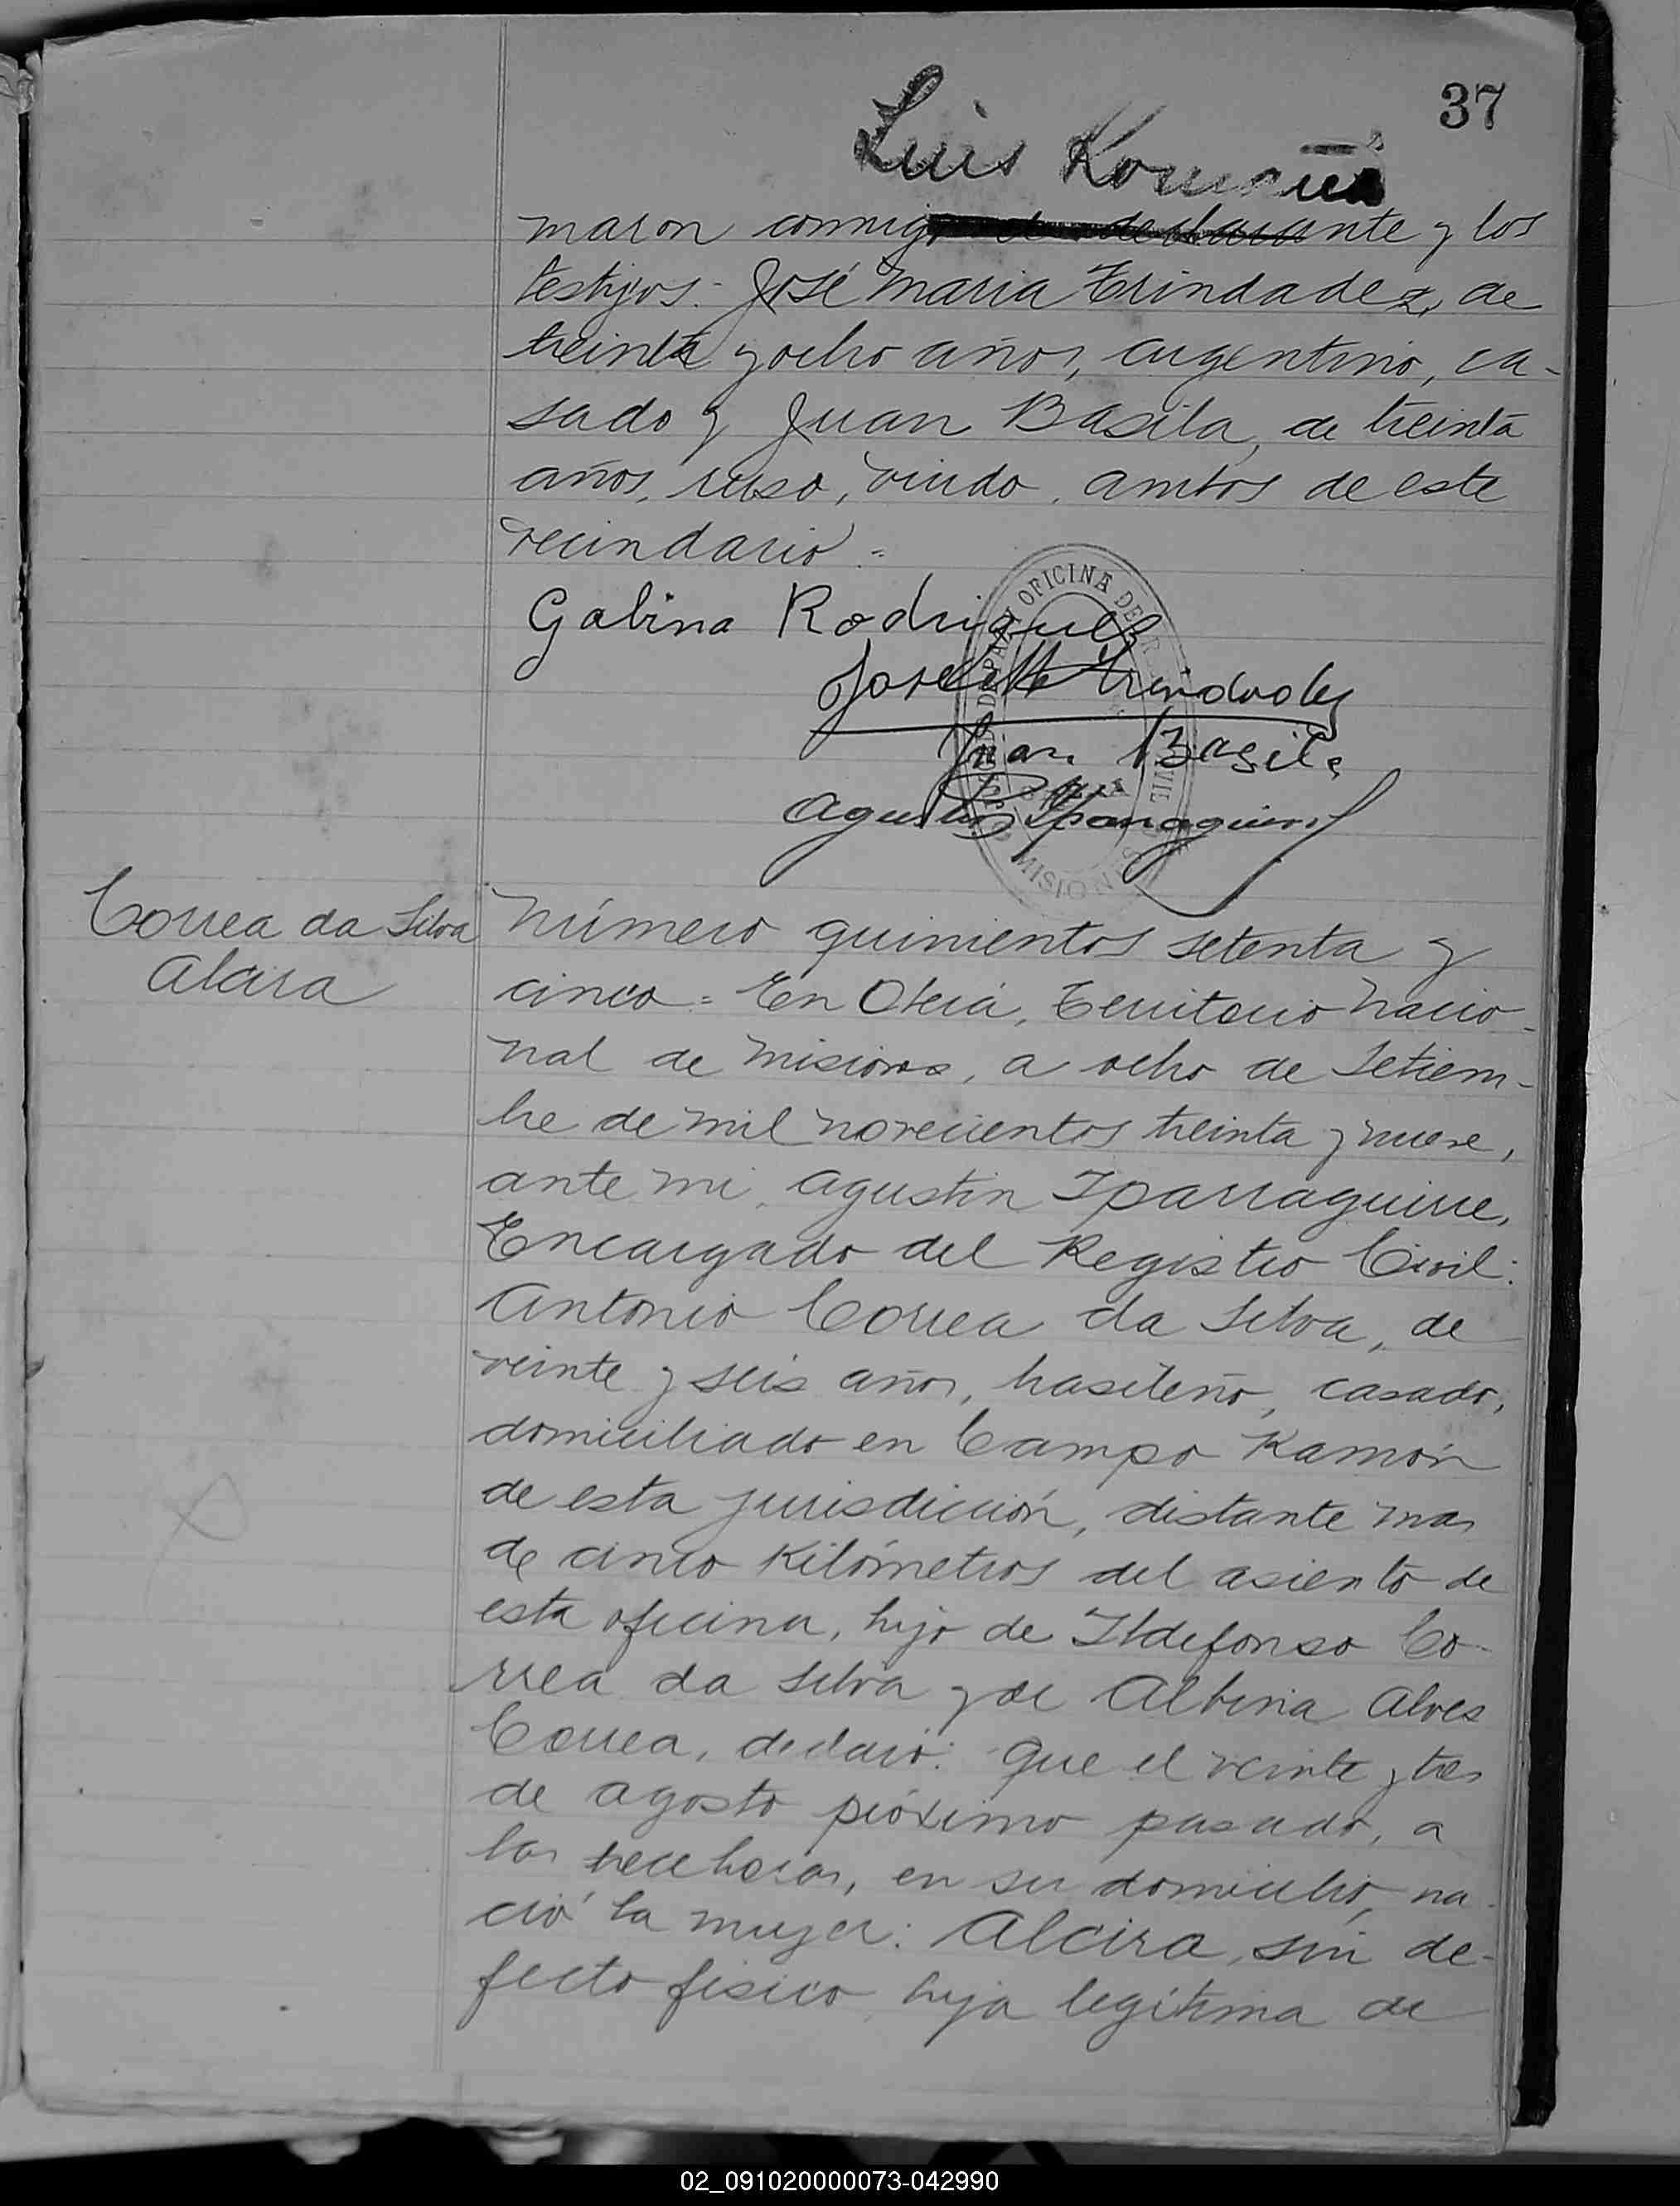 37
Luis
maron conmigo el declarante y los
testigos: José Maria Trindadez, de
treinta y ocho años, argentino, ca-
sado y Juan Basila, de treinta
años, ruso, viudo, ambos de este
vecindario =
Galina Rodriguez
José M Trindadez
Juan Basila
Agustin Iparraguirre
OFICINA DEL REGISTRO CIVIL
MISIONES
Correa da Silva
Alcira
Número quinientos setenta y
cinco = En Oberá, Territorio Nacio-
nal de Misiones, a ocho de Setiem-
bre de mil novecientos treinta y nueve,
ante mi, Agustin Iparraguirre,
Encargado del Registro Civil:
Antonio Correa da Silva, de
veinte y seis años, brasileño, casado,
domiciliado en Campo Ramón
de esta jurisdicción, distante mas
de cinco kilómetros del asiento de
esta oficina, hijo de Ildefonso Co-
rrea da Silva y de Albina Alves
Correa, declaró: Que el veinte y tres
de agosto próximo pasado, a
las trece horas, en su domicilio, na-
ció la mujer: Alcira, sin de-
fecto fisico, hija legítima de
02_091020000073-042990